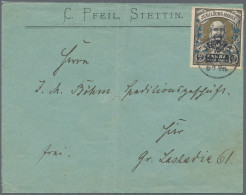 C. PFEIL. STETTIN.
Herrn
J. A. Böhm. Speditionsgeschäft.
frei.
Hier
Gr. Lastadie 61.